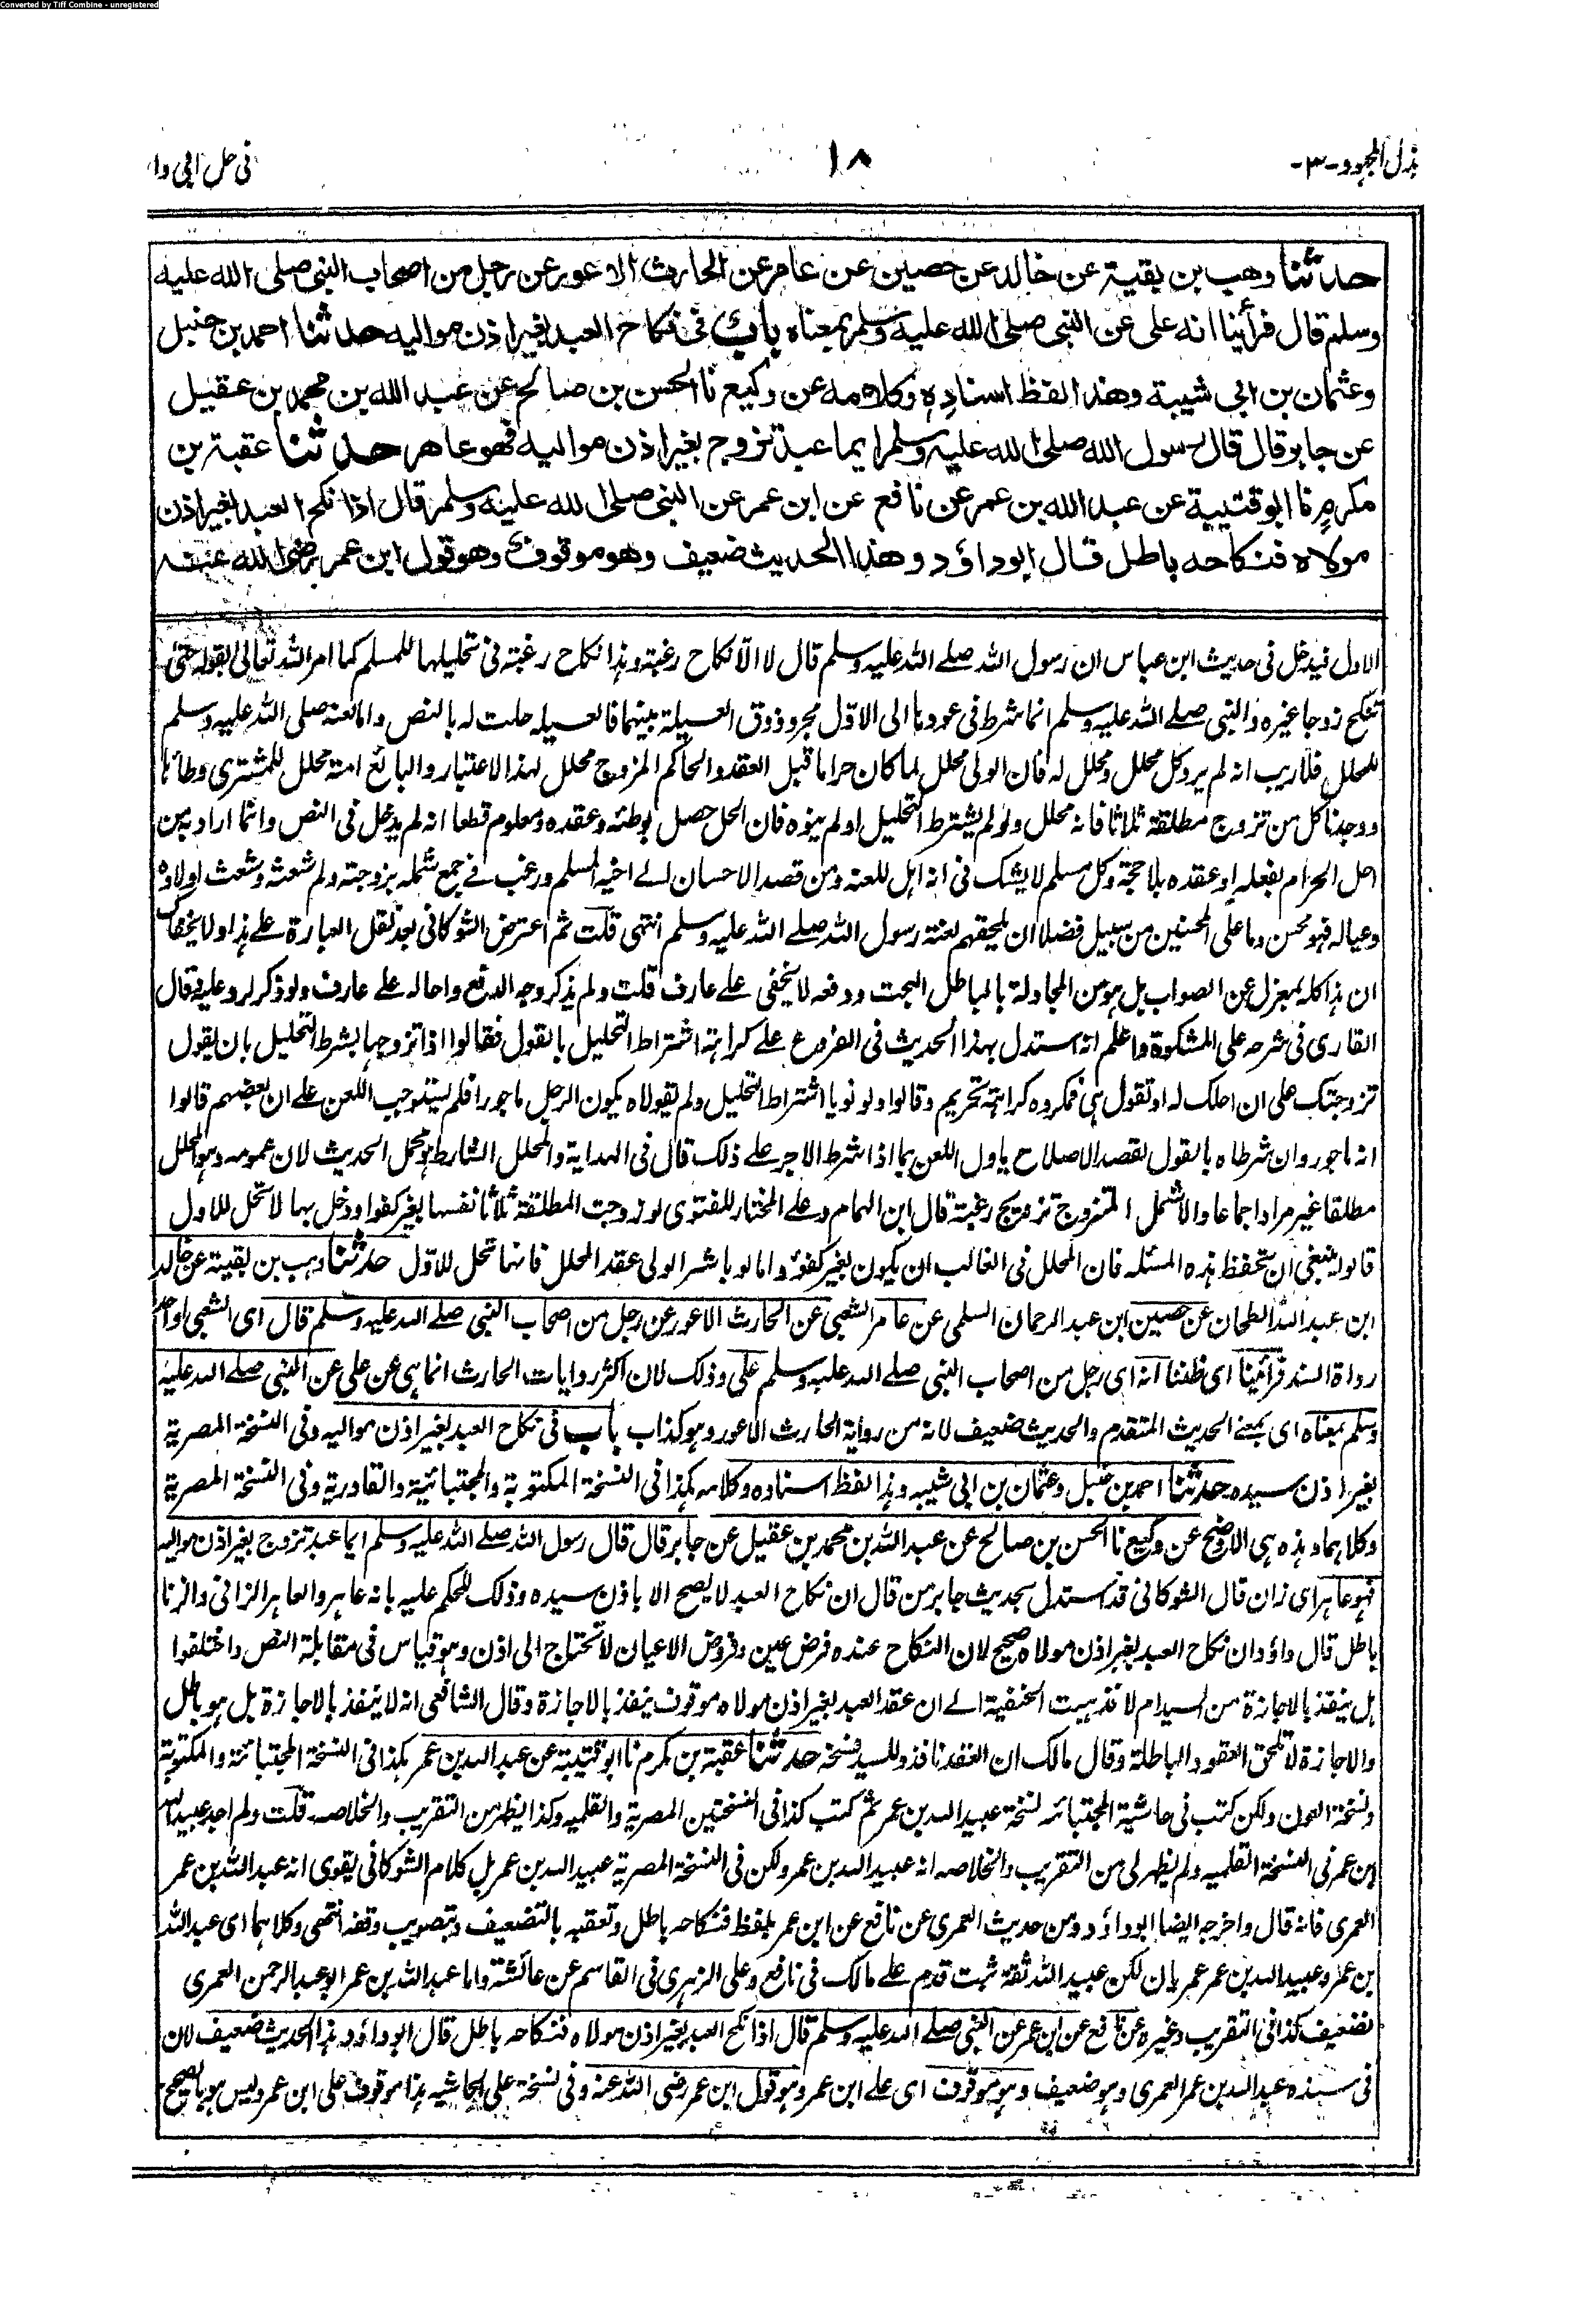 Converted by Tiff Combine - unregistered
بذل المجهود-٣-
١٨
في حل ابي دا
حدثنا وهب بن بقية عن خالد عن حصين عن عامر عن الحارث الاعور عن رجل من اصحاب النبي صلى الله عليه
وسلم قال فرأينا انه علي عن النبي صلى الله عليه وسلم بمعناه باب في نكاح العبد بغير اذن مواليه حدثنا احمد بن حنبل
وعثمان بن ابي شيبة وهذا لفظ اسناده وكلامه عن وكيع نا الحسن بن صالح عن عبد الله بن محمد بن عقيل
عن جابر قال قال رسول الله صلى الله عليه وسلم ايما عبد تزوج بغير اذن مواليه فهو عاهر حدثنا عقبة بن
مكرم نا ابو قتيبة عن عبد الله بن عمر عن نافع عن ابن عمر عن النبي صلى الله عليه وسلم قال اذا نكح العبد بغير اذن
مولاه فنكاحه باطل قال ابو داؤد وهذا الحديث ضعيف وهو موقوف وهو قول ابن عمر رضى الله عنه
الاول فيدخل في حديث ابن عباس ان رسول الله صلے الله عليه وسلم قال لا الا نكاح رغبة وهذا نكاح رغبة في تحليلها للمسلم كما امر الله تعالى بقوله حتى
تنكح زوجا غيره والنبي صلے الله عليه وسلم انما شرط في عودها الى الاول مجرد ذوق العسيلة بينهما فالعسيله حلت له بالنص واما لعنه صلى الله عليه وسلم
للمحلل فلا ريب انه لم يرد كل محلل ومحلل له فان الولى محلل لما كان حراما قبل العقد والحاكم المزوج محلل بهذا الاعتبار والبائع امته محلل للمشتري وطأها
ووجدنا كل من تزوج مطلقة ثلاثا فانه محلل ولو لم يشترط التحليل او لم ينوه فان الحل حصل بوطئه وعقده ومعلوم قطعا انه لم يدخل في النص وانما اراد به من
احل الحرام بفعله او عقده بلا حجة وكل مسلم لا يشك في انه اهل للعنه ومن قصد الاحسان الے اخيه المسلم ورغب في جمع شمله بزوجته ولم شعثه وشعث اولاده
وعياله فهو محسن وما على المحسنين من سبيل فضلا ان يلحقهم لعنة رسول الله صلے الله عليه وسلم انتهى قلت ثم اعترض الشوكاني بعد نقل العبارة علے هذا ولا يخفاك
ان هذا كله بمعزل عن الصواب بل هو من المجادلة بالباطل البحت ودفعه لا يخفى علے عارف قلت ولم يذكر وجه الدفع واحاله علے عارف ولو ذكر لرد عليه قال
القاري في شرحه على المشكوة واعلم انه استدل بهذا الحديث في الفروع علے كراهة اشتراط التحليل بالقول فقالوا اذا تزوجها بشرط التحليل بان يقول
تزوجتك على ان احلك له او تقول هي فمكروه كراهة تحريم وقالوا ولو نويا اشتراط التحليل ولم يقولاه يكون الرجل ماجورا فلم يستوجب اللعن علے ان بعضهم قالوا
انه ماجور وان شرطاه بالقول لقصد الاصلاح ياول اللعن بما اذا شرط الاجر علے ذلك قال في الهداية والمحلل الشارط هو محمل الحديث لان عمومه وهو المحلل
مطلقا غير مراد اجماعا والا شمل المتزوج تزويج رغبة قال ابن الهمام وعلے المختار للفتوى لو زوجت المطلقة ثلاثا نفسها بغير كفوا ودخل بها لا تحل للاول
قالوا ينبغي ان تحفظ هذه المسئله فان المحلل في الغالب ان يكون بغير كفوء واما لو باشر الولى عقد المحلل فانها تحل للاول حدثنا وهب بن بقية عن خالد
ابن عبد الله الطحان عن حصين ابن عبد الرحمان السلمي عن عامر الشعبي عن الحارث الاعور عن رجل من اصحاب النبي صلے الله عليه وسلم قال اى الشعبي او احد
رواة السند فرأينا اى ظننا انه اى رجل من اصحاب النبي صلے الله عليه وسلم علي وذلك لان اكثر روايات الحارث انما هي عن علي عن النبي صلے الله عليه
وسلم بمعناه اى بمعنے الحديث المتقدم والحديث ضعيف لانه من رواية الحارث الاعور وهو كذاب باب في نكاح العبد بغير اذن مواليه وفي النسخة المصرية
بغير اذن سيده حدثنا احمد بن حنبل وعثمان بن ابي شيبه وهذا لفظ اسناده وكلامه هكذا في النسخة المكتوبة والمجتبائية والقادرية وفي النسخة المصرية
وكلاهما وهذه هي الاوضح عن وكيع نا الحسن بن صالح عن عبد الله بن محمد بن عقيل عن جابر قال قال رسول الله صلے الله عليه وسلم ايما عبد تزوج بغير اذن مواليه
فهو عاهر اى زان قال الشوكاني قد استدل بحديث جابر من قال ان نكاح العبد لا يصح الا باذن سيده وذلك للحكم عليه بانه عاهر والعاهر الزاني والزنا
باطل قال داؤد ان نكاح العبد بغير اذن مولاه صحيح لان النكاح عنده فرض عين وفروض الاعيان لا تحتاج الى اذن وهو قياس في مقابلة النص واختلفوا
هل ينفذ بالاجازة من السيد ام لا فذهبت الحنفية الے ان عقد العبد بغير اذن مولاه موقوف ينفذ بالاجازة وقال الشافعي انه لا ينفذ بالاجازة بل هو باطل
والاجازة لا تلحق العقود الباطلة وقال مالك ان العقد نافذ وللسيد فسخه حدثنا عقبة بن مكرم نا ابو قتيبة عن عبد الله بن عمر هكذا في النسخة المجتبائة والمكتوبة
ونسخة العون ولكن كتب في حاشية المجتبائه نسخة عبيد الله بن عمر ثم كتب كذا في النسختين المصرية والقلميه وكذا يظهر من التقريب والخلاصه قلت ولم اجد عبيد الله
ابن عمر في النسخة القلميه ولم يظهر لي من التقريب والخلاصه انه عبيد الله بن عمر ولكن في النسخة المصرية عبيد الله بن عمر بل كلام الشوكاني يقوى انه عبد الله بن عمر
العمري فانه قال واخرجه ايضا ابو داؤد ومن حديث العمري عن نافع عن ابن عمر بلفظ فنكاحه باطل وتعقبه بالتضعيف وبتصويب وقفه انتهى وكلاهما اى عبد الله
ابن عمر وعبيد الله بن عمر عمريان لكن عبيد الله ثقة ثبت قدم علے مالك في نافع وعلى الزهري في القاسم عن عائشة واما عبد الله بن عمر ابو عبد الرحمن العمري
فضعيف كذا في التقريب وغيره عن نافع عن ابن عمر عن النبي صلے الله عليه وسلم قال اذا نكح العبد بغير اذن مولاه فنكاحه باطل قال ابو داؤد هذا الحديث ضعيف لان
في سنده عبد الله بن عمر العمري وهو ضعيف وهو موقوف اى علے ابن عمر وهو قول ابن عمر رضى الله عنه وفي نسخة على الحاشيه هذا موقوف على ابن عمر وليس هو بالصحيح